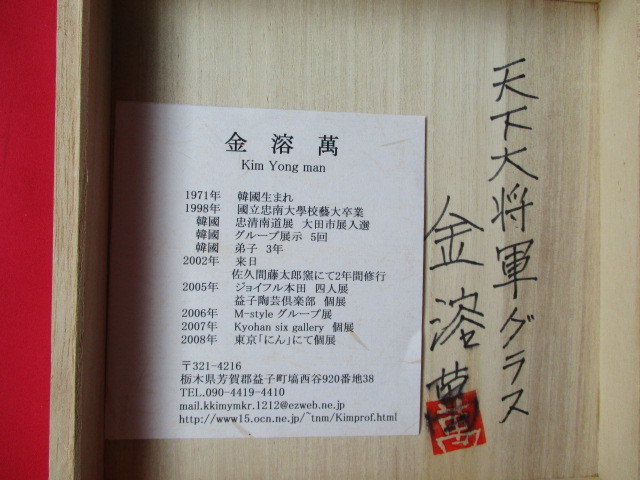 天下大将軍グラス
金溶萬
萬
金 溶 萬
Kim Yong man
1971年 韓國生まれ
1998年 國立忠南大學校藝大卒業
韓國 忠清南道展 大田市展入選
韓國 グループ展示 5回
韓國 弟子 3年
2002年 来日
佐久間藤太郎窯にて2年間修行
2005年 ジョイフル本田 四人展
益子陶芸倶楽部 個展
2006年 M-style グループ展
2007年 Kyohan six gallery 個展
2008年 東京「にん」にて個展
〒321-4216
栃木県芳賀郡益子町塙西谷920番地38
TEL.090-4419-4410
mail.kkimymkr.1212@ezweb.ne.jp
http://www15.ocn.ne.jp/~tnm/Kimprof.html